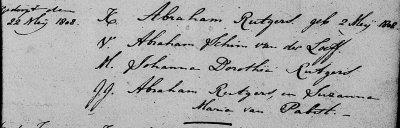 Gedoopt den
22 Meij 1808.
K. Abraham Rutgers geb 2 Meij 1808
V. Abraham Schim van der Loeff
M. Johanna Dorothea Rutgers
GG. Abraham Rutgers, en Suzanna
Maria van Pabst.